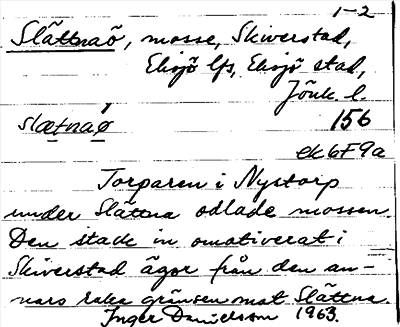 1-2
Slättnaö, mosse, Skiverstad,
Eksjö lfs, Eksjö stad,
Jönk. l.
slætnaǿ 156
ek 6F9a
Torparen i Nystorp
under Slättna odlade mossen.
Den stack in omotiverat i
Skiverstad ägor från den an-
nars raka gränsen mot Slättna.
Inger Danielsson 1963.